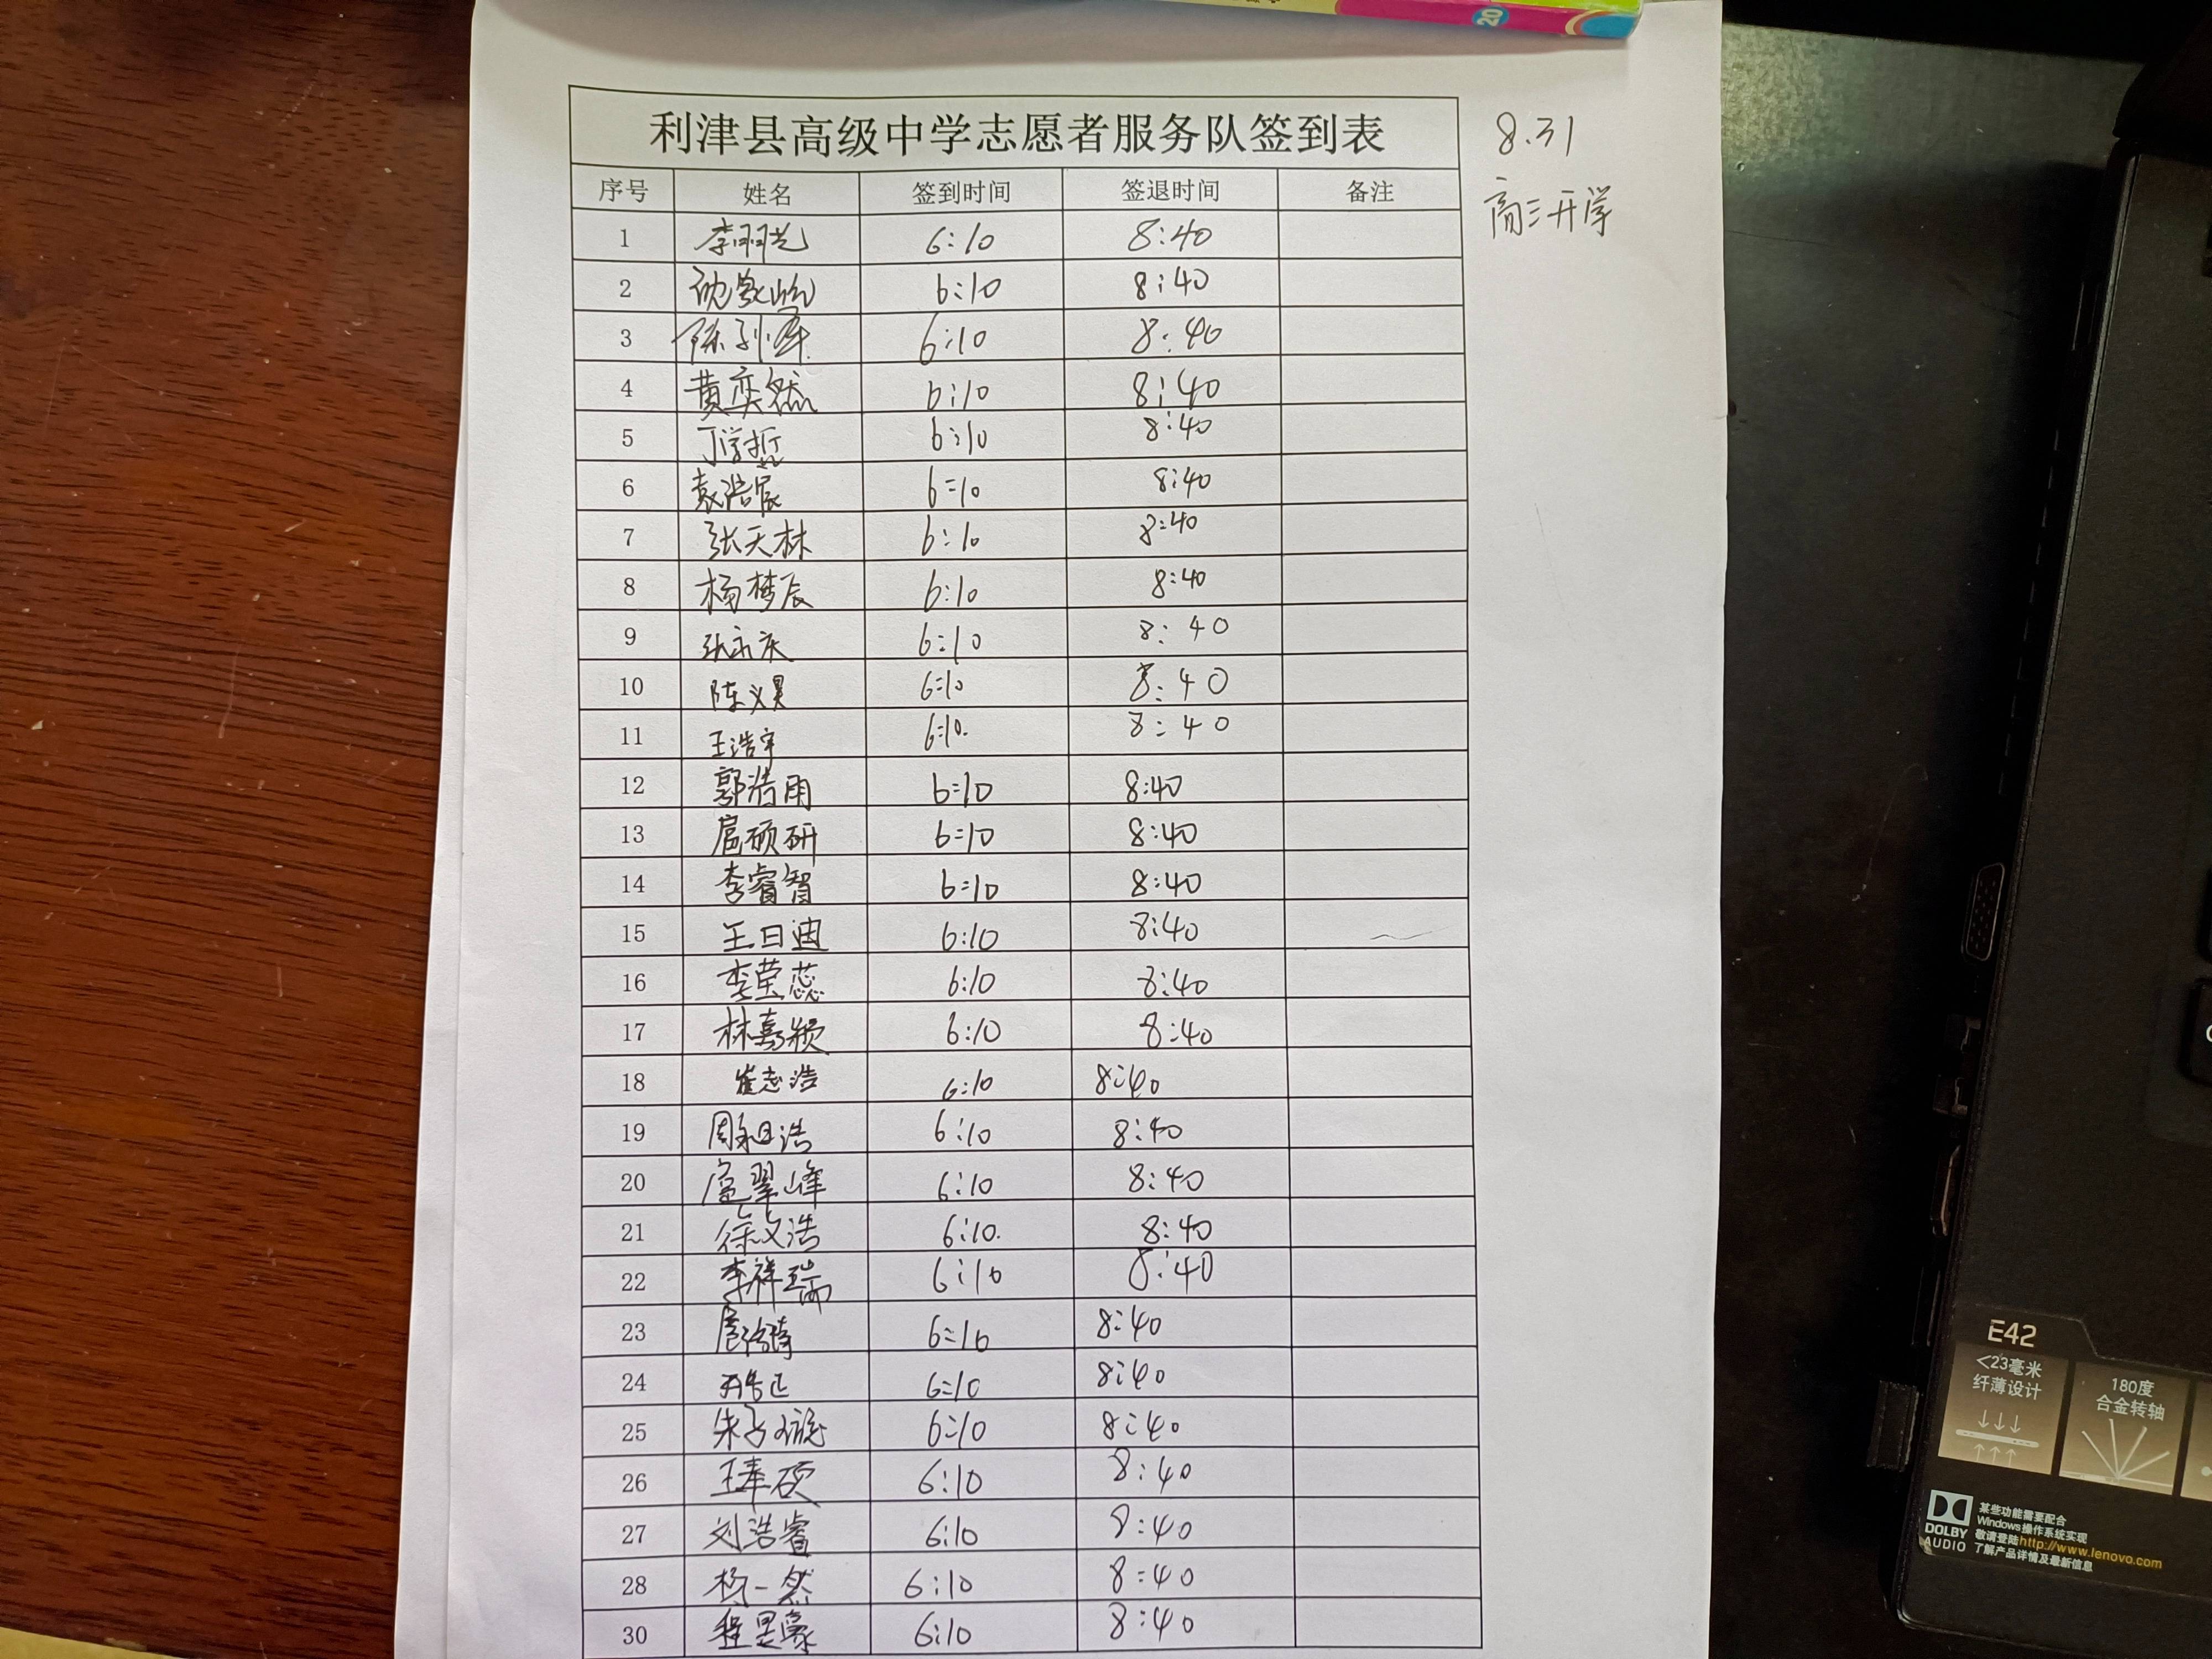 20
利津县高级中学志愿者服务队签到表
8.31
高三开学
序号 姓名 签到时间 签退时间 备注
1 6:10 8:40
2 6:10 8:40
3 陈 6:10 8:40
4 黄奕然 6:10 8:40
5 丁学哲 6:10 8:40
6 袁浩宸 6:10 8:40
7 张天林 6:10 8:40
8 杨梦辰 6:10 8:40
9 张永庆 6:10 8:40
10 陈义昊 6:10 8:40
11 王浩宇 6:10 8:40
12 郭浩雨 6:10 8:40
13 扈硕研 6:10 8:40
14 李睿智 6:10 8:40
15 王日迪 6:10 8:40
16 李莹蕊 6:10 8:40
17 林嘉颖 6:10 8:40
18 崔志浩 6:10 8:40
19 周 浩 6:10 8:40
20 扈翠峰 6:10 8:40
21 徐文浩 6:10 8:40
22 李祥瑞 6:10 8:40
23 扈 6:10 8:40
24 6:10 8:40
25 朱子璇 6:10 8:40
26 王奉硕 6:10 8:40
27 刘浩睿 6:10 8:40
28 杨一然 6:10 8:40
30 程昱豪 6:10 8:40
E42
<23毫米
纤薄设计
180度
合金转轴
DOLBY
AUDIO
某些功能需要配合
Windows操作系统实现
敬请登陆http://www.lenovo.com
了解产品详情及最新信息